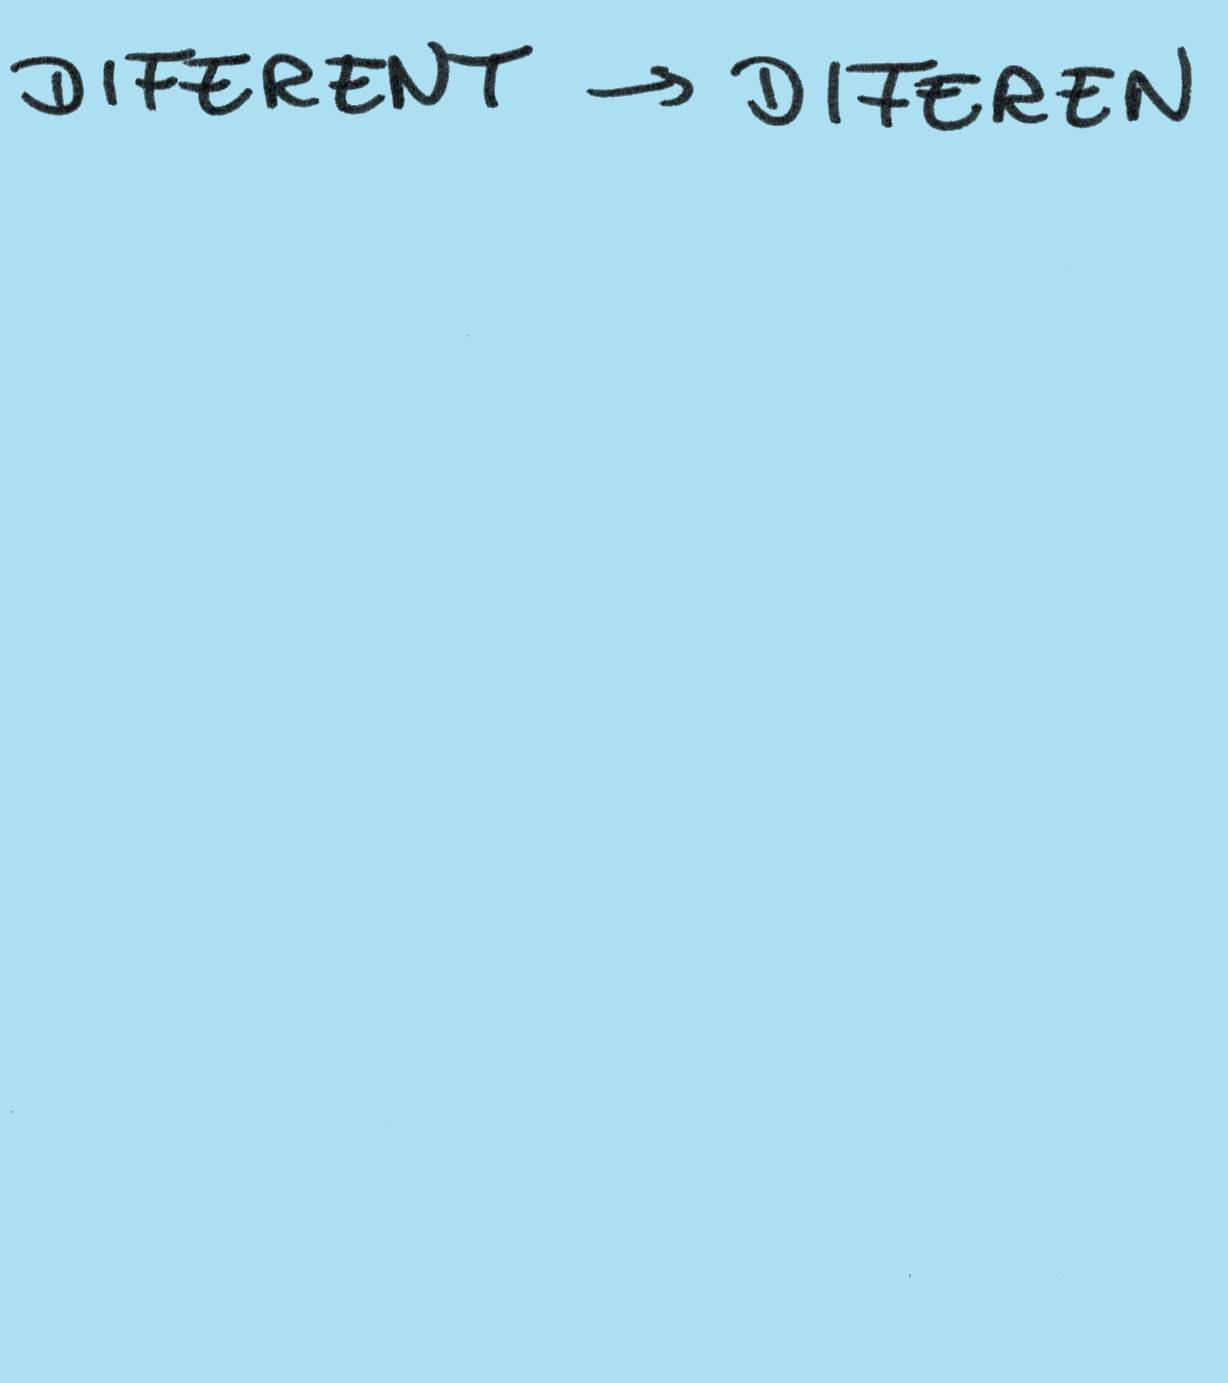 DIFERENT → DIFEREN